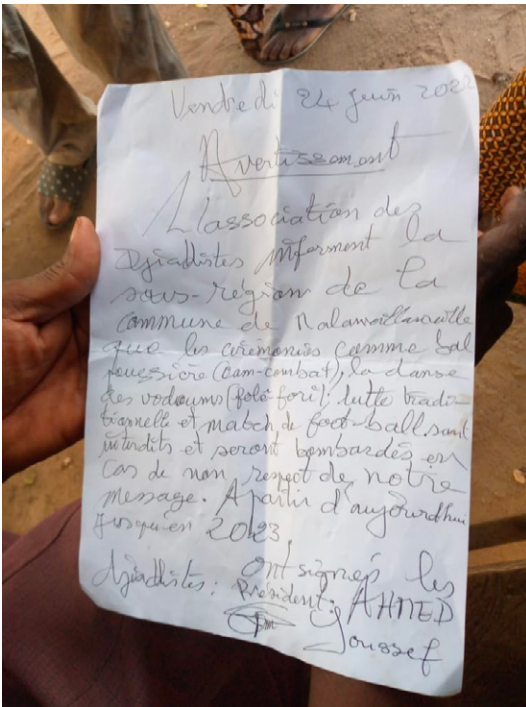 Vendredi 24 juin 2022
Avertissement
L'association des
Djiadistes informent la
sous-région de la
commune de
que les cérémonies comme bal
poussière (Cam-combat), la danse
des vodouns (folé-fori), lutte tradi-
tionnelle et match de foot-ball sont
interdits et seront bombardés en
cas de non respect de notre
message. A partir d'aujourdhui
jusqu'en 2023,
ont signés les
djiadistes: Président: AHMED
Youssef